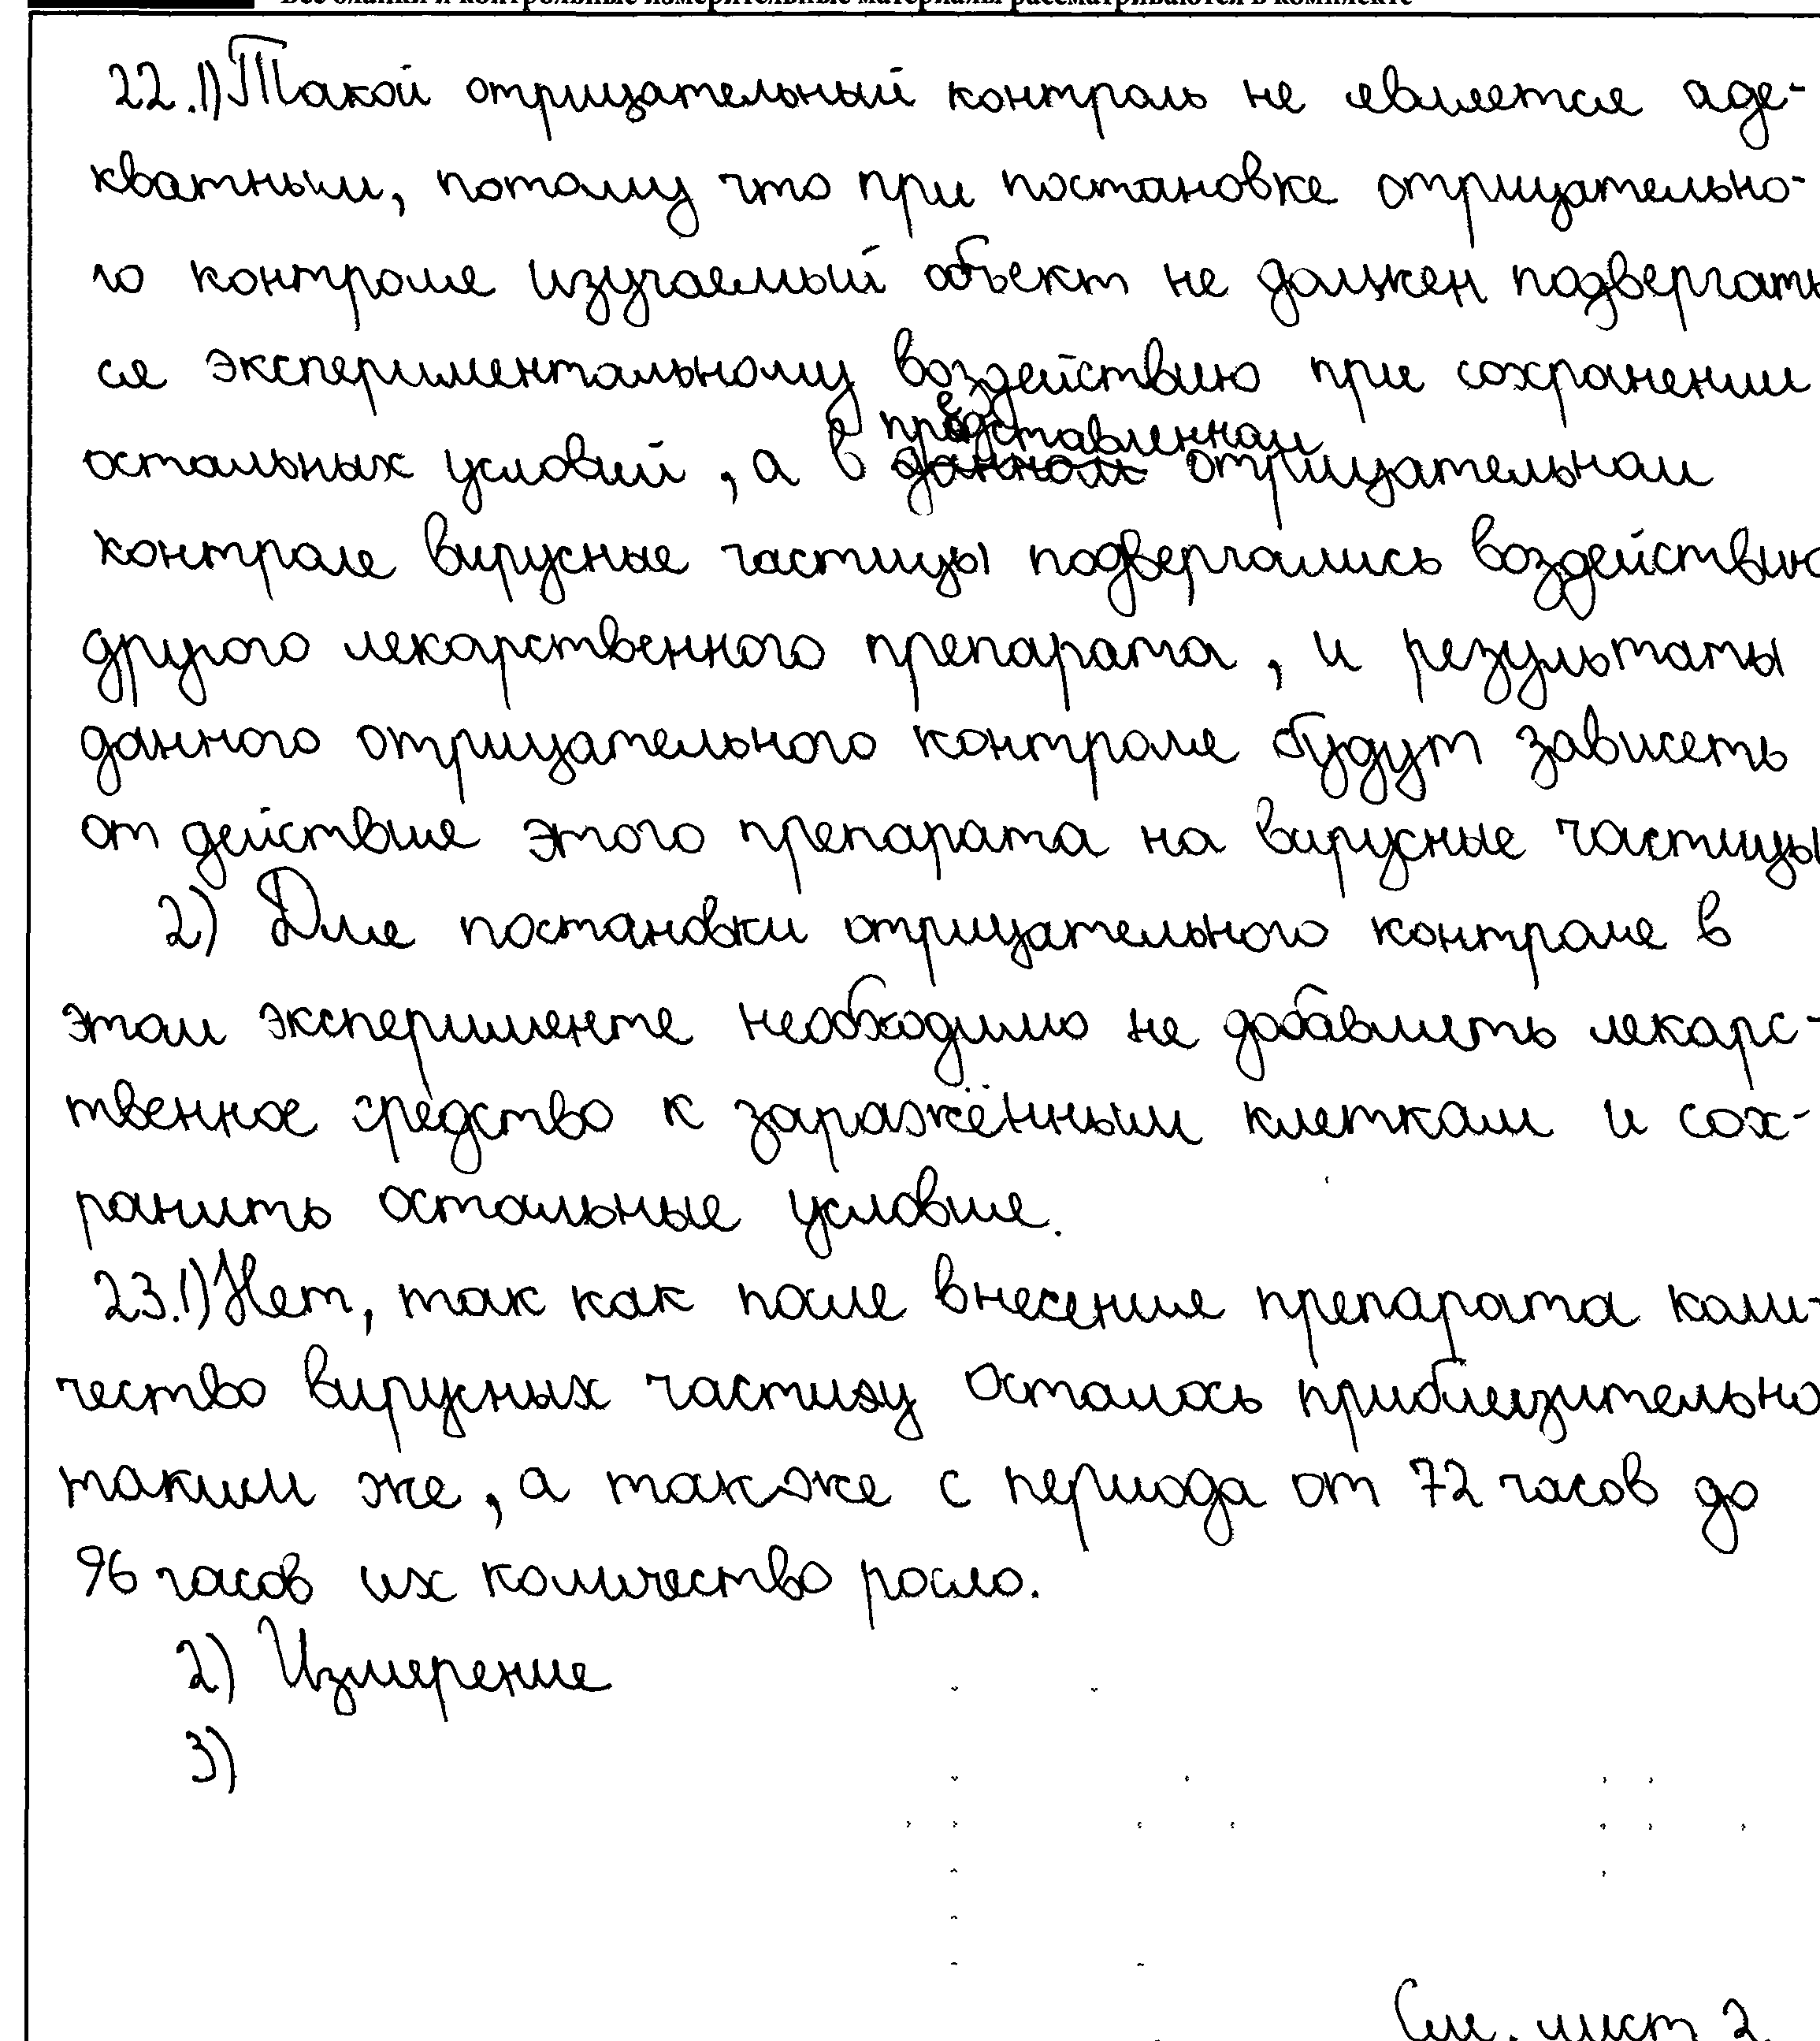 Все бланки и контрольные измерительные материалы рассматриваются в комплекте
22.1) Такой отрицательный контроль не является аде-
кватным, потому что при постановке отрицательно-
го контроля изучаемый объект не должен подвергать
ся экспериментальному воздействию при сохранении
остальных условий, а в представленном отрицательном
контроле вирусные частицы подвергались воздействию
другого лекарственного препарата, и результаты
данного отрицательного контроля будут зависеть
от действия этого препарата на вирусные частицы
2) Для постановки отрицательного контроля в
этом эксперименте необходимо не добавлять лекарс-
твенное средство к заражённым клеткам и сох-
ранить остальные условия.
23.1) Нет, так как после внесения препарата коли-
чество вирусных частиц осталось приблизительно
таким же, а также с периода от 72 часов до
96 часов их количество росло.
2) Измерение
3)
См. лист 2